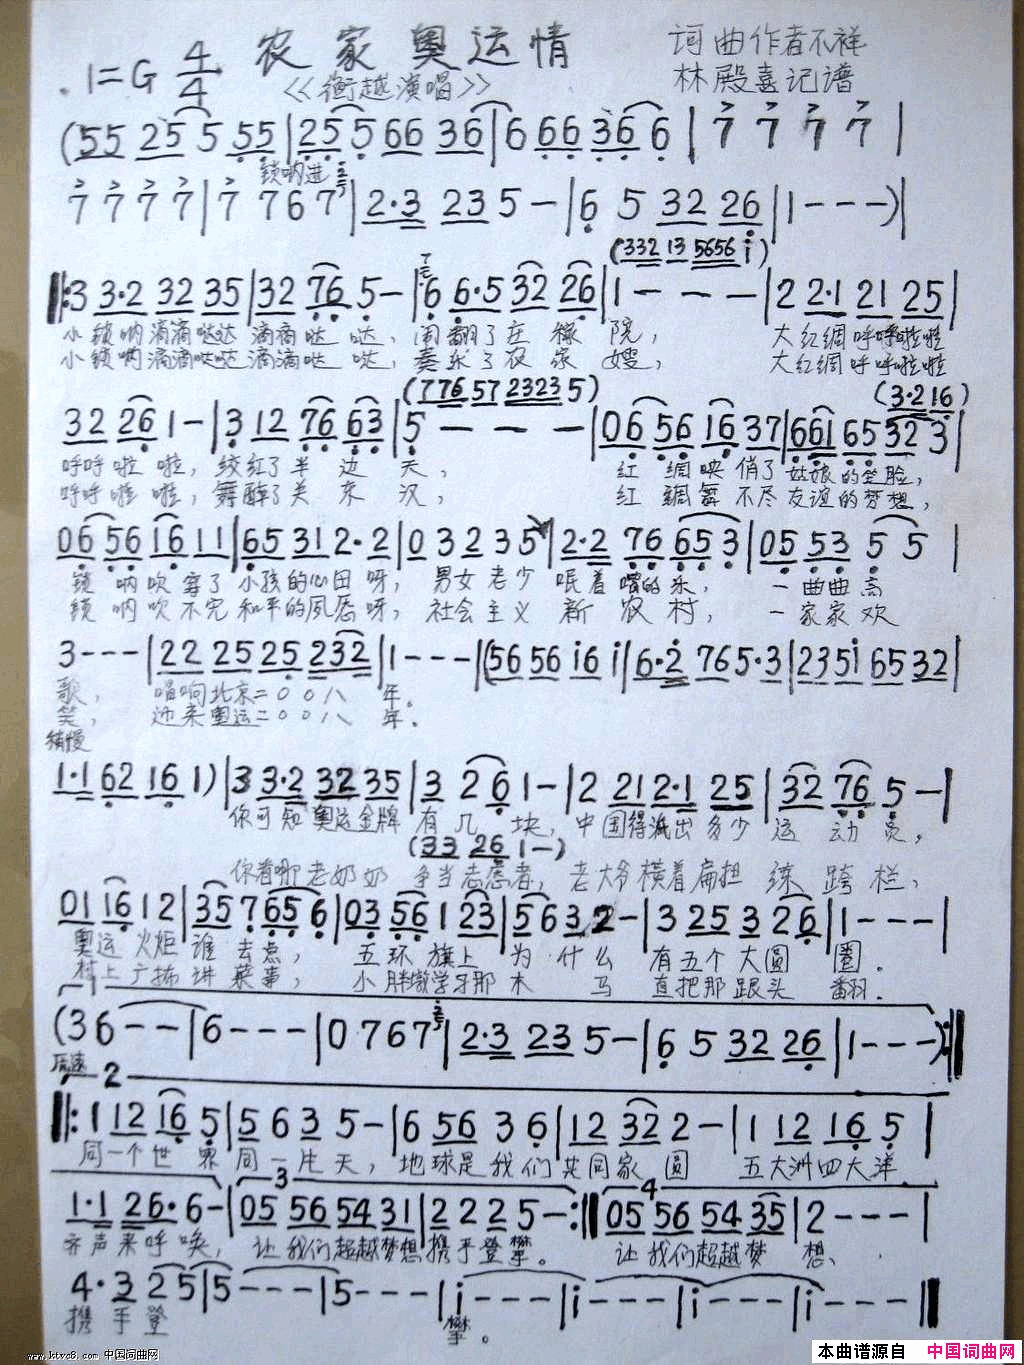 农家奥运情
词曲作者不祥
1=G 4/4
《衡越演唱》
林殿喜记谱
(55 25 5 55|25 5 66 36|6 66 36 6|7 7 7 7|
锁呐进
7 7 7 7|7 7 6 7|2·3 23 5 —|6 5 32 26|1 - - -)|
(332 13 5656 i)
‖:3 3·2 32 35|32 76 5 —|6 6·5 32 26|1 — — —|2 2·1 21 25|
小锁呐滴滴哒达滴滴哒哒,闹翻了庄稼院,大红绸呼呼啦啦
小锁呐滴滴哒哒滴滴哒哒,奏乐了农家嫂,大红绸呼呼啦啦
(776 57 2323 5)
(3·2 16)
32 26 1 —|3 12 76 63|5 — — —|06 56 16 37|661 65 32 3|
呼呼啦啦,绞红了半边天,红绸映俏了姑娘的笑脸,
呼呼啦啦,舞醉了关东汉,红绸舞不尽友谊的梦想,
06 56 16 11|65 31 2·2|0 3 2 3 5|2·2 76 65 3|05 53 5 5|
锁呐吹穿了小孩的心田呀,男女老少 着 的乐,一曲曲高
锁呐吹不完和平的夙愿呀,社会主义新农村,一家家欢
3 - - -|22 25 25 232|1 - - -|(56 56 i6 i|6·2 76 5·3|235i 65 32|
歌,唱响北京二〇〇八年。
笑,迎来奥运二〇〇八年.
稍慢
1·1 62 16 1)|3 3·2 32 35|3 2 6 1 —|2 21 2·1 25|32 76 5 —|
你可知奥运金牌有几块,中国得派出多少运动员,
(33 26 1 —)
你看那老奶奶争当志愿者,老大爷横着扁担练跨栏,
01 16 1 2|35 7 65 6|03 56 1 23|5 6 3 2 —|3 25 3 26|1 - - -|
奥运火炬谁去点,五环旗上为什么有五个大圆圈.
村上广播讲故事,小胖墩学习那木马直把那跟头翻.
1
(3 6 — —|6 - - -|0 7 6 7|2·3 23 5 —|6 5 32 26|1 - - -):‖
原速
2
‖:1 12 16 5|5 6 3 5 —|6 56 3 6|12 32 2 —|1 12 16 5|
同一个世界同一片天,地球是我们共同家园五大洲四大洋
3
4
1·1 26·6 —|05 56 54 31|2 2 2 5 —:‖05 56 54 35|2 - - -|
齐声来呼唤,让我们超越梦想携手登攀。让我们超越梦想、
4·3 2 5 5|5 - - -|5 - - -|i - - -|i - - -|i - - -|i - - -‖
携手登攀。
www.ktvc8.com 中国词曲网
本曲谱源自 中国词曲网